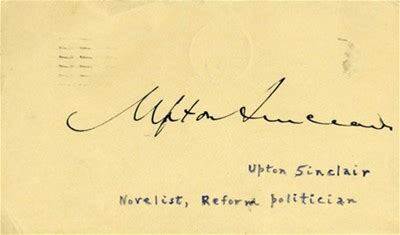 Upton Sinclair
Upton Sinclair
Novelist, Reform politician